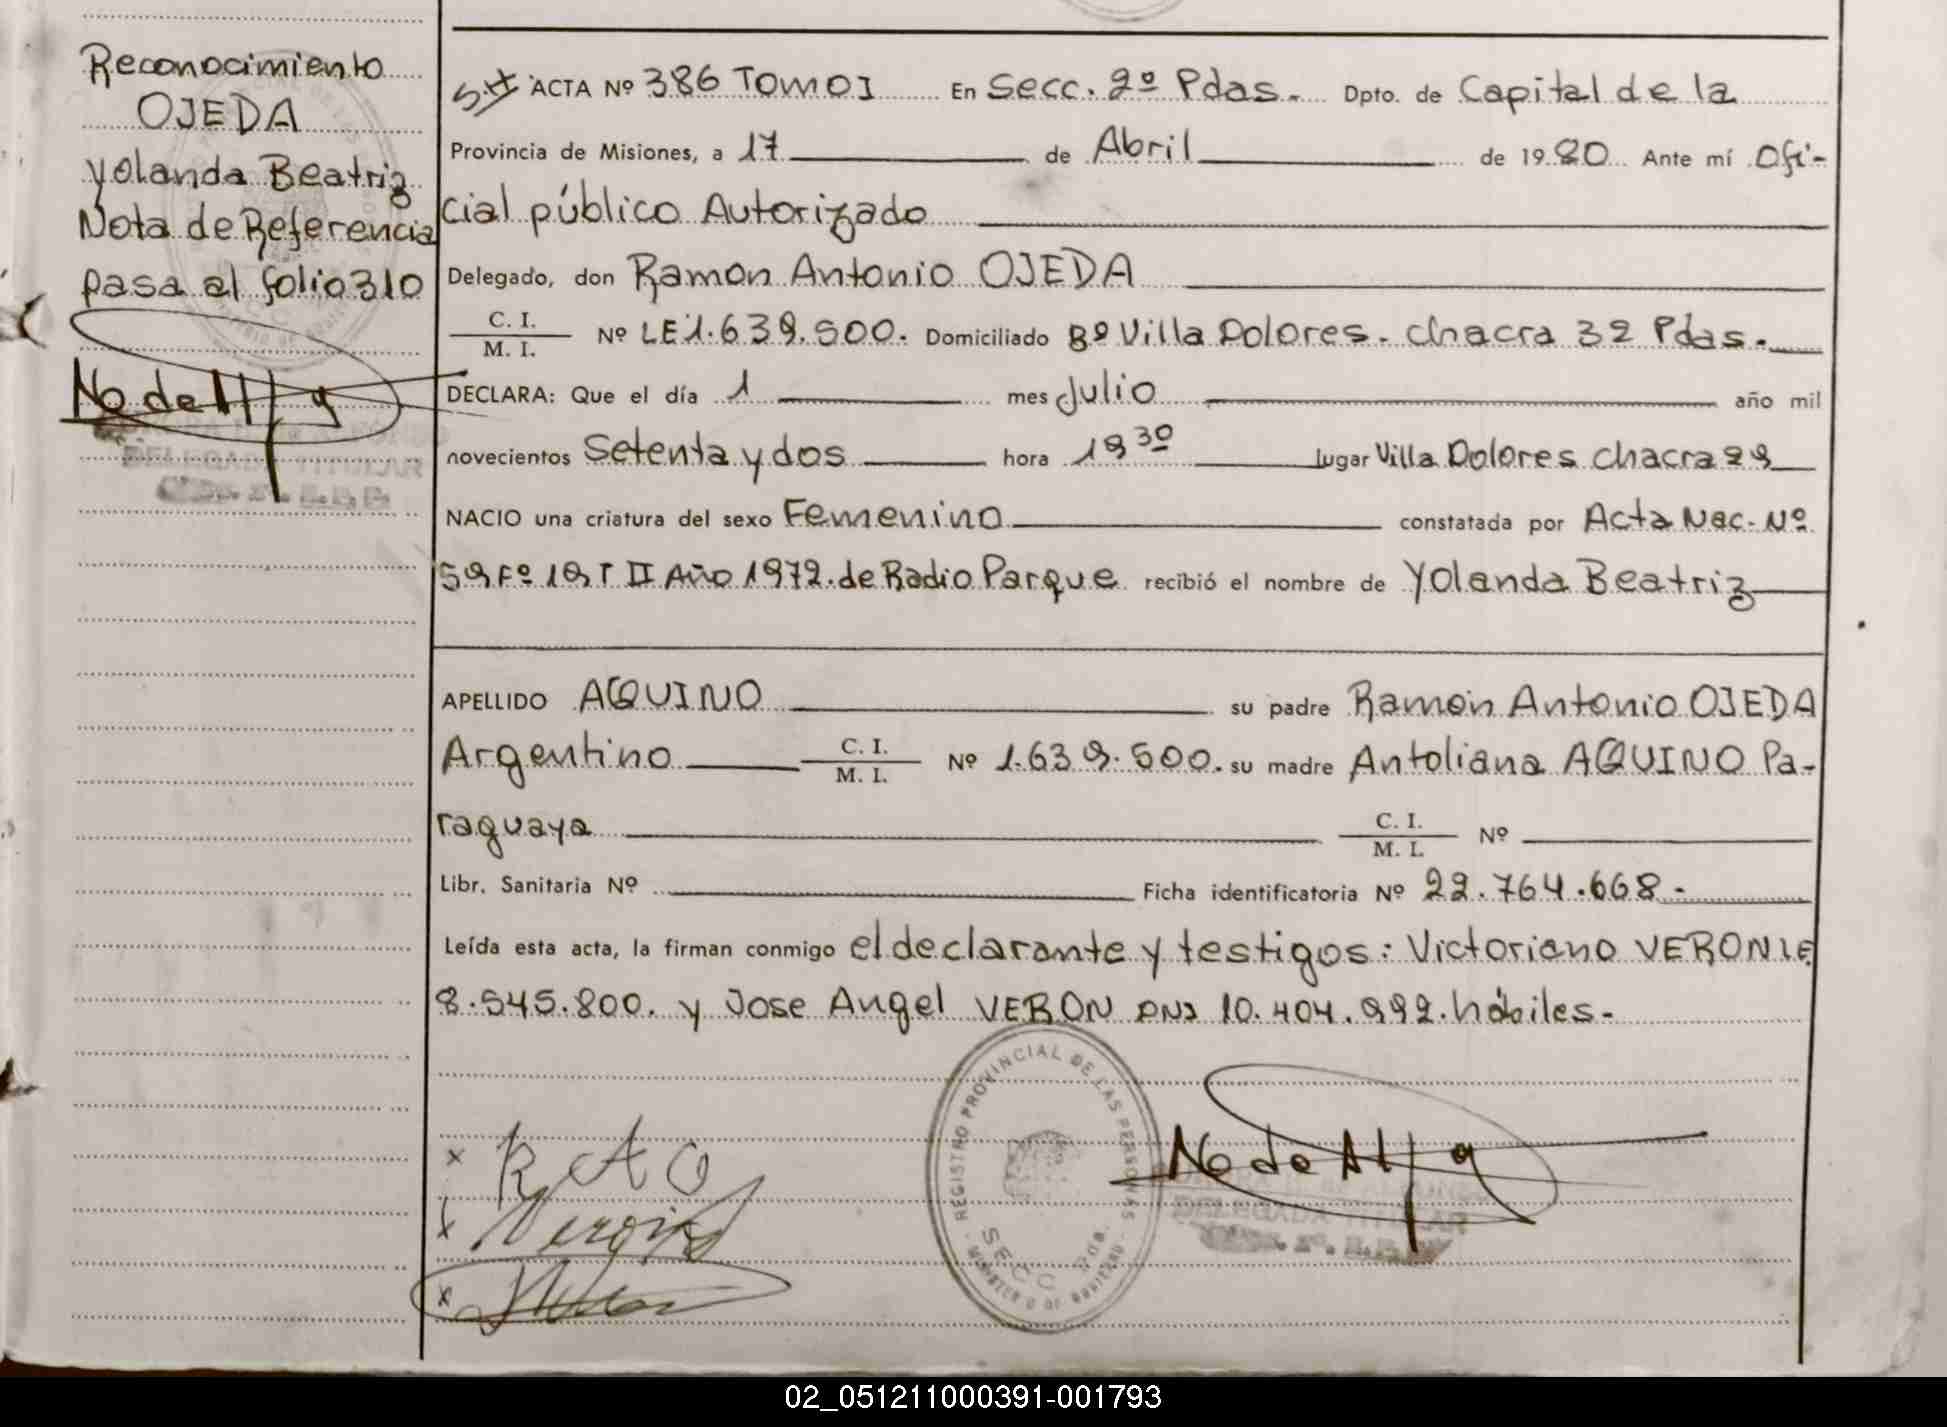 Reconocimiento
OJEDA
Yolanda Beatriz
Nota de Referencia
pasa al folio 310
ACTA Nº 386 TOMO I En Secc. 2º Pdas. Dpto. de Capital de la
Provincia de Misiones, a 17 de Abril de 1980 Ante mí Ofi-
cial público Autorizado
Delegado, don Ramon Antonio OJEDA
C. I.
M. I.
Nº LE 1.639.500. Domiciliado Bº Villa Dolores. Chacra 32 Pdas.
DECLARA: Que el día 1 mes Julio año mil
novecientos Setenta y dos hora 19 30 lugar Villa Dolores chacra
NACIO una criatura del sexo Femenino constatada por Acta Nac. Nº
59 Fº 19 T II Año 1972. de Radio Parque recibió el nombre de Yolanda Beatriz
APELLIDO AQUINO su padre Ramón Antonio OJEDA
Argentino C. I. M. I. Nº 1.639.500. su madre Antoliana AQUINO Pa-
raguaya C. I. M. I. Nº
Libr. Sanitaria Nº Ficha identificatoria Nº 22.764.668.-
Leída esta acta, la firman conmigo el declarante y testigos: Victoriano VERON LE
8.545.800. y Jose Angel VERON DNI 10.404.992. hábiles.-
x R A O
x
x
REGISTRO PROVINCIAL DE LAS PERSONAS
SECC 2da.
DELEGADA TITULAR
02_051211000391-001793